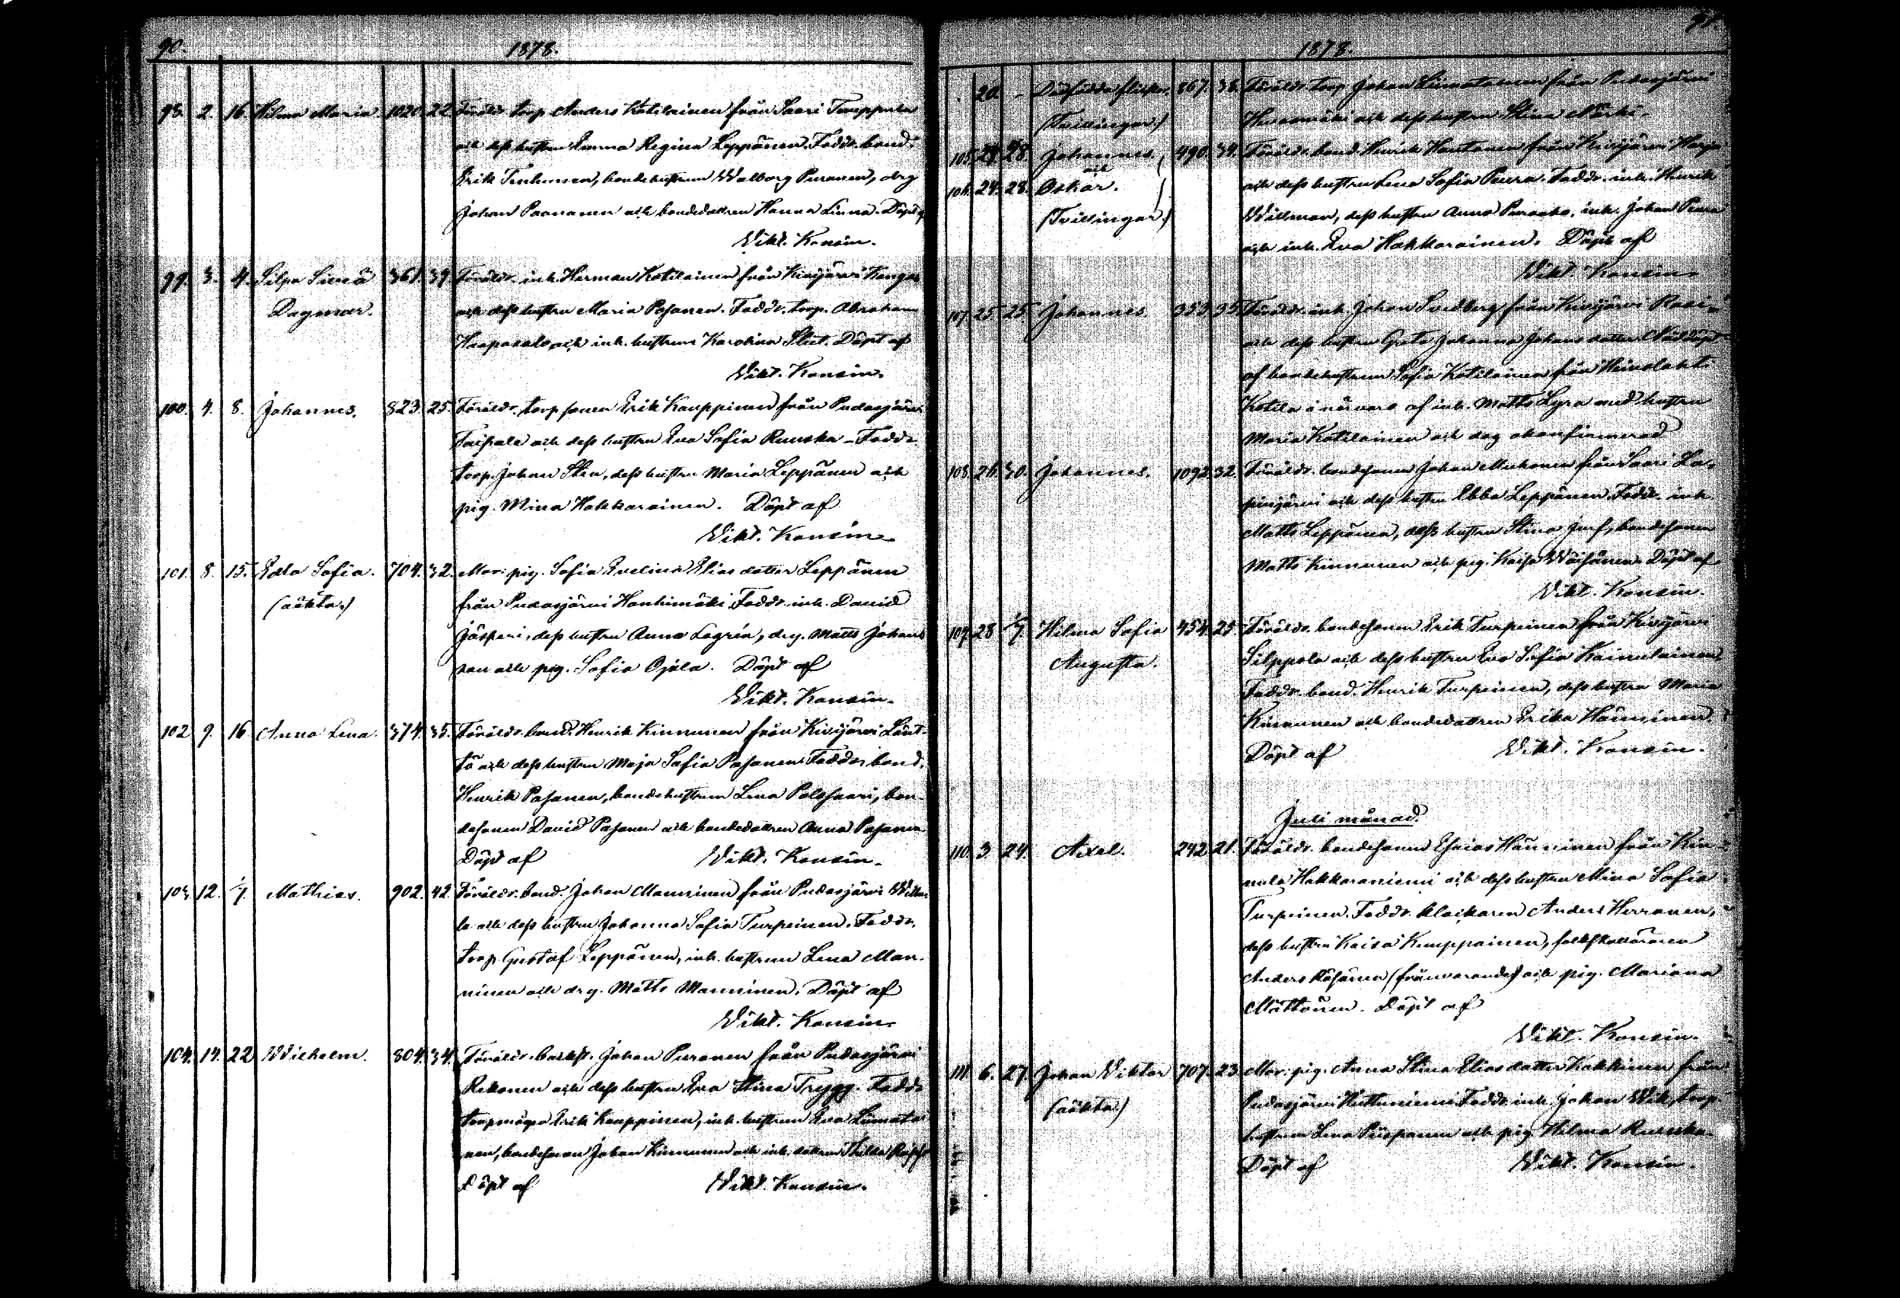 90.
1878.
98. 2. 16. Hilma Maria. 1020. 22. Föräldr. torp. Anders Kotilainen från Saari
och dess hustru Emma Regina Leppänen. Faddr. bond.
Erik Tenhunen, bondehustrun Walborg Puranen, drg
Johan Paananen och bondedottren Hanna Linna. Döpt af
Vikt. Konsin.
99. 3. 4. Silpa Siviä 361. 39. Föräldr. inh. Herman Kotilainen från Kivijärvi Kangas
Dagmar. och dess hustru Maria Pasanen. Faddr. torp. Abraham
Haapasalo och inh. hustrun Karolina Döpt af
Vikt. Konsin.
100. 4. 8. Johannes. 823. 25. Föräldr. torp. sonen Erik Kauppinen från Pudasjärvi
Taipale och dess hustru Eva Sofia Runska. Faddr.
torp. Johan dess hustru Maria Leppänen och
pig. Mina Hakkarainen. Döpt af
Vikt. Konsin.
101. 8. 15. Edla Sofia. 704. 32. Mor: pig. Sofia Evelina Elias dotter Leppänen
(oäkta.) från Pudasjärvi Honkimäki. Faddr. inh. David
Jäsperi, dess hustru Anna Lagrén, drg. Matts Johans
son och pig. Sofia Ojala. Döpt af
Vikt. Konsin.
102. 9. 16. Anna Lena. 374. 35. Föräldr. bond. Henrik Kinnunen från Kivijärvi Länt-
tä och dess hustru Maja Sofia Pasanen. Faddr. bond.
Henrik Pasanen, bondehustrun Lena Palosaari, bon-
desonen David Pasanen och bondedottren Anna Pasanen.
Döpt af Vikt. Konsin.
103. 12. 1/7. Mathias. 902. 42. Föräldr. bond. Johan Manninen från Pudasjärvi
la och dess hustru Johanna Sofia Turpeinen. Faddr.
torp. Gustaf Leppänen, inh. hustrun Lena Man-
ninen och drg. Matts Manninen. Döpt af
Vikt. Konsin.
104. 14. 22. Wilhelm. 804. 34. Föräldr. backst. Johan Puranen från Pudasjärvi
Rekonen och dess hustru Eva Stina Trygg. Faddr.
torpmågen Erik Kauppinen, inh. hustrun Eva Liimatai-
nen, bondesonen Johan Kinnunen och inh. dottren Thilda
Döpt af Vikt. Konsin.
91.
1878.
20. – Dödfödda flickor. 867. 38. Föräldr. torp. Johan Liimatainen från Pudasjärvi
(Tvillingar.) och dess hustru Stina
105. 24. 28. Johannes 490. 34. Föräldr. bond. Henrik Hautanen från Kivijärvi
och
106. 24. 28. Oskar. och dess hustru Lena Sofia Peura. Faddr. inh. Henrik
(Tvillingar.) Willman, dess hustru Anna inh. Johan Peura
och inh. Eva Hakkarainen. Döpt af
Vikt. Konsin.
107. 25. 25. Johannes 353. 35. Föräldr. inh. Johan Svedberg från Kivijärvi
och dess hustru Greta Johanna Johans dotter. Nöddöpt
af bondehustrun Sofia Kotilainen från Heinolahti
Kotila i närvaro af inh. Matts Lyra med hustru
Maria Kotilainen och dog okonfirmerad
108. 26. 30. Johannes. 1092. 32. Föräldr. bondesonen Johan Muhonen från Saari La-
pinjärvi och dess hustru Ebba Leppänen. Faddr. inh.
Matts Leppänen, dess hustru Stina bondesonen
Matts Kinnunen och pig. Kaisa Wäisänen. Döpt af
Vikt. Konsin.
109. 28. 1/7. Hilma Sofia 454. 25. Föräldr. bondesonen Erik Turpeinen från Kivijärvi
Augusta. Silppola och dess hustru Eva Sofia Kainulainen.
Faddr. bond. Henrik Turpeinen, dess hustru Maria
Kinnunen och bondedottren Erika Hänninen.
Döpt af Vikt. Konsin.
Juli månad.
110. 3. 24. Axel. 242. 21. Föräldr. bondesonen Esaias Hänninen från Kin-
nula Hakkaraniemi och dess hustru Mina Sofia
Turpeinen. Faddr. klockaren Anders Herranen,
dess hustru Kaisa Kumppainen, folkskolläraren
Anders (frånvarande) och pig. Mariana
Möttönen. Döpt af
Vikt. Konsin.
111. 6. 27. Johan Viktor 707. 23. Mor: pig. Anna Stina Elias dotter Kokkinen från
(oäkta.) Pudasjärvi Huttuniemi. Faddr. inh. Johan Wik, torp.
hustrun Lena Piispanen och pig. Hilma Runska.
Döpt af Vikt. Konsin.